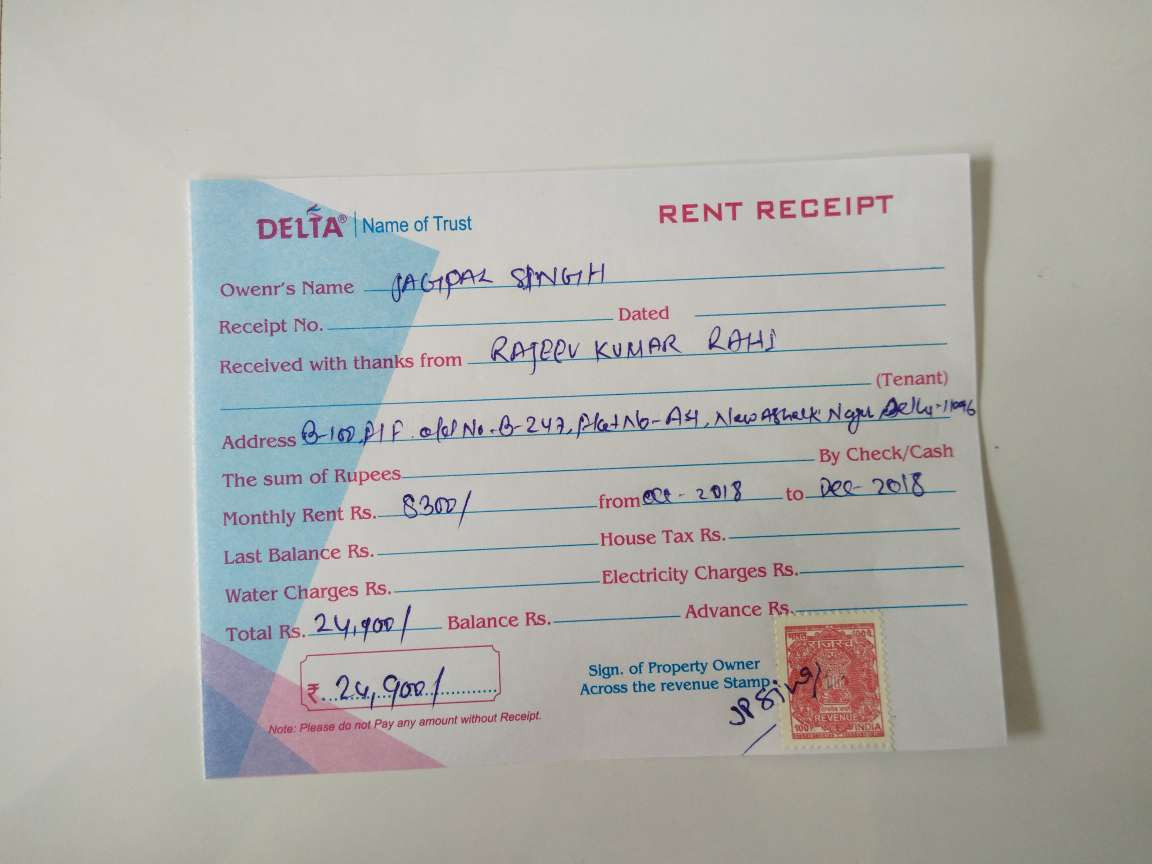 DELTA® | Name of Trust
RENT RECEIPT
Owenr's Name JAGPAL SINGH
Receipt No. Dated
Received with thanks from RAJEEV KUMAR RAHI
(Tenant)
Address B-100, F/F. old No.-B-247, Flat No-A4, New Ashok Ngr Delhi-110096
The sum of Rupees By Check/Cash
Monthly Rent Rs. 8300/ from Oct - 2018 to Dec - 2018
Last Balance Rs. House Tax Rs.
Water Charges Rs. Electricity Charges Rs.
Total Rs. 24,900/ Balance Rs. Advance Rs.
₹ 24,900/
Sign. of Property Owner
Across the revenue Stamp
JP Singh
Note: Please do not Pay any amount without Receipt.
भारत
राजस्व
REVENUE
INDIA